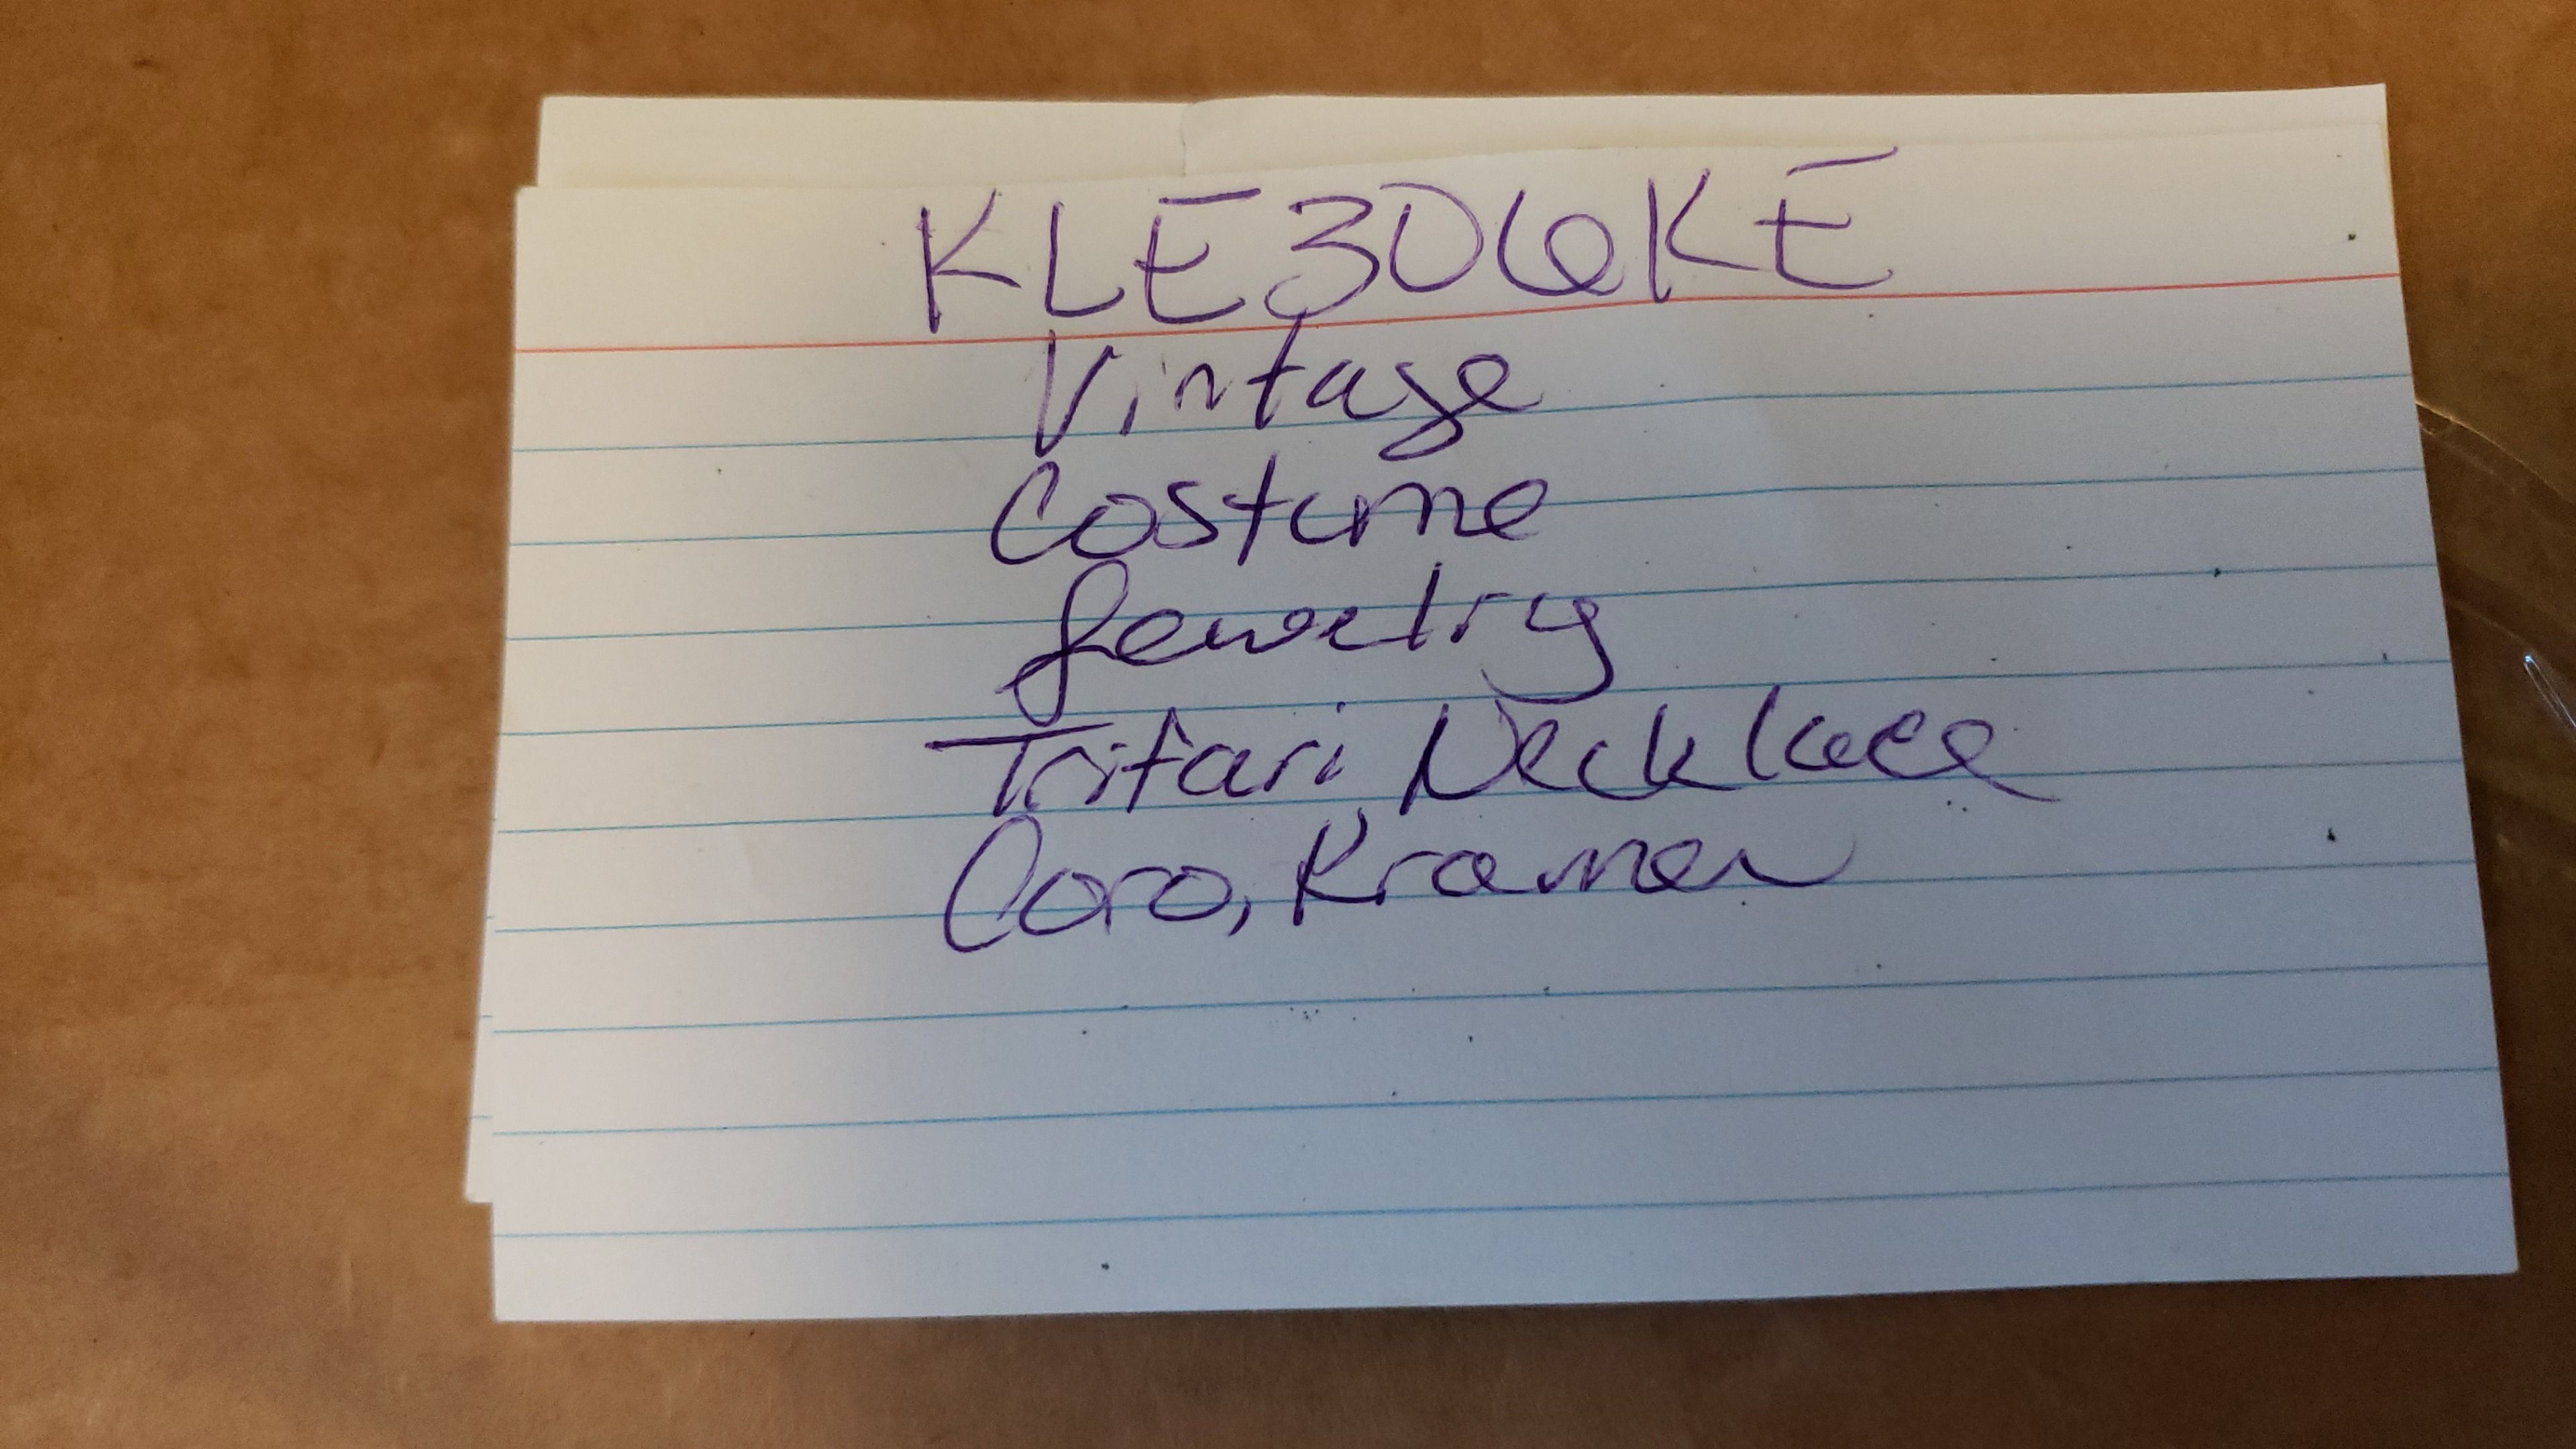 KLE306KE
Vintage
Costume
Jewelry
Trifari Necklace
Coro, Kramer